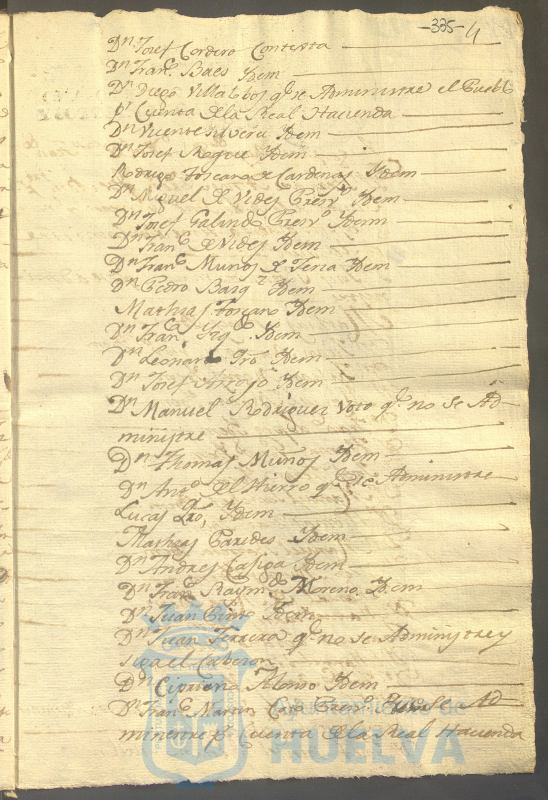 -335- 4
Dn Josef Cordero Contexta
Dn Franco Baes Idem
Dn Diego Villalobos qe se Administre el Pueblo
pr Cuenta de la Real Hacienda
Dn Vicente Idem
Dn Josef Roque Idem
Rodrigo Toscano de Cardenas Idem
Dn Miguel de Vides Presvo Idem
Dn Josef Galindo Presvo Idem
Dn Franco de Vides Idem
Dn Franco Muños de Idem
Dn Pedro Idem
Mathias Toscano Idem
Dn Franco Idem
Dn Leonardo Idem
Dn Josef Arroyo Idem
Dn Manuel Rodriguez Voto qe no se Ad-
ministre
Dn Thomas Muños Idem
Dn Anto del Hierro qe se Administre
Lucas Idem
Mathias Paredes Idem
Dn Andres Idem
Dn Franco Raymdo Moreno Idem
Dn Juan Idem
Dn Juan Ferrero qe no se Administre y
siga el Cabezon
Dn Cipriano Alonso Idem
Dn Franco Martin Presvo se Ad
ministre pr Cuenta de la Real Hacienda
HUELVA